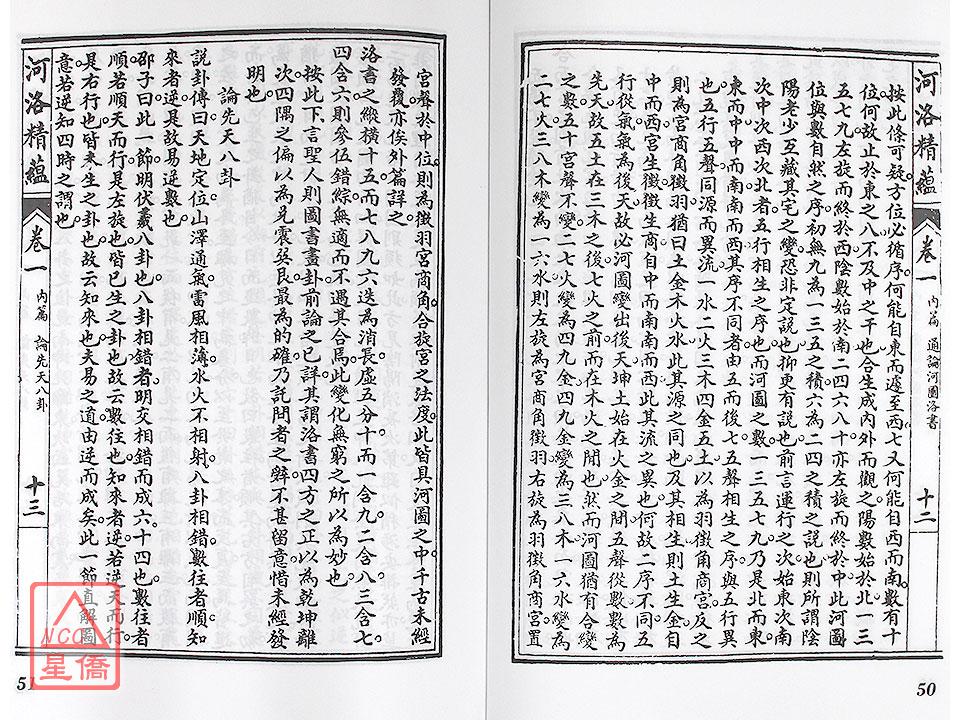 河洛精蘊 卷一 內篇 通論河圖洛書 十二
按此條可疑方位必循序何能自東而遽至西七又何能自西而南數有十
位何故止於東之八不及中之十也合生成內外而觀之陽數始於北一三
五七九左旋而終於西陰數始於南二四六八十亦左旋而終於中此河圖
位與數自然之序初無九為一三五之積六為二四之積之說也則所謂陰
陽老少互藏其宅之變恐非定說也抑更有說也前言運行之次始東次南
次中次西次北者五行相生之序也而河圖之數一三五七九乃是北而東
東而中中而南南而西其序不同者由五而後七五聲相生之序與五行異
也五行五聲同源而異流一水二火三木四金五土以為羽徵角商宮反之
則為宮商角徵羽猶曰土金木火水此其源之同也及其相生則土生金自
中而西宮生徵徵生商自中而南南而西此其流之異也何故二序不同五
行從氣氣為後天故必河圖變出後天坤土始在火金之間五聲從數數為
先天故五土在三木之後七火之前而在木火之間也然而河圖猶有合變
之數五十宮聲不變二七火變為四九金四九金變為三八木一六水變為
二七火三八木變為一六水則左旋為宮商角徵羽右旋為羽徵角商宮置
50
宮聲於中位則為徵羽宮商角合旋宮之法度此皆具河圖之中千古未經
發覆亦俟外篇詳之
洛書之縱橫十五而七八九六迭為消長虛五分十而一含九二含八三含七
四含六則參伍錯綜無適而不遇其合焉此變化無窮之所以為妙也
按此下言聖人則圖書畫卦前論之已詳其謂洛書四方之正以為乾坤離
次四隅之偏以為兌震巽艮最為的確乃託問者之辭不甚留意惜未經發
明也
論先天八卦
說卦傳曰天地定位山澤通氣雷風相薄水火不相射八卦相錯數往者順知
來者逆是故易逆數也
邵子曰此一節明伏羲八卦也八卦相錯者明交相錯而成六十四也數往者
順若順天而行是左旋也皆已生之卦也故云數往也知來者逆若逆天而行
是右行也皆未生之卦也故云知來也夫易之道由逆而成矣此一節直解圖
意若逆知四時之謂也
河洛精蘊 卷一 內篇 論先天八卦 十三
51
NCC
星僑